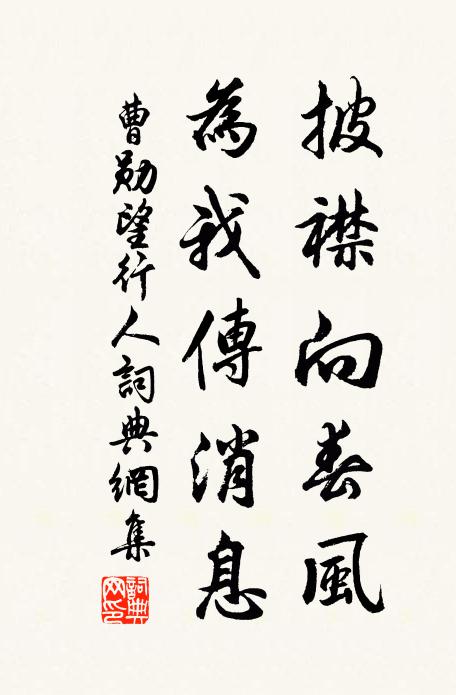 披襟向春風
為我傳消息
曹勛望行人詞典網集
詞典
網印